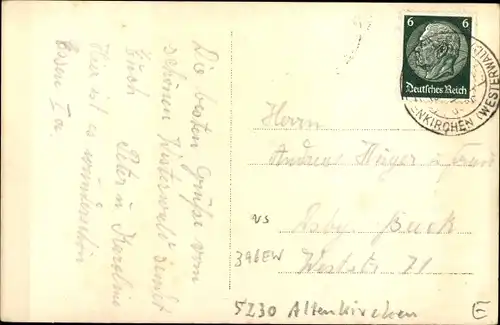 Die besten Grüße vom
schönen Westerwald sendet
Euch Peter u Karoline
Hier ist es wunderschön
Essen I a.
6 6
Deutsches Reich
ALTENKIRCHEN (WESTERWALD)
Herrn
Andreas u Frau
Weststr 71
VS
396EW
5230 Altenkirchen
E